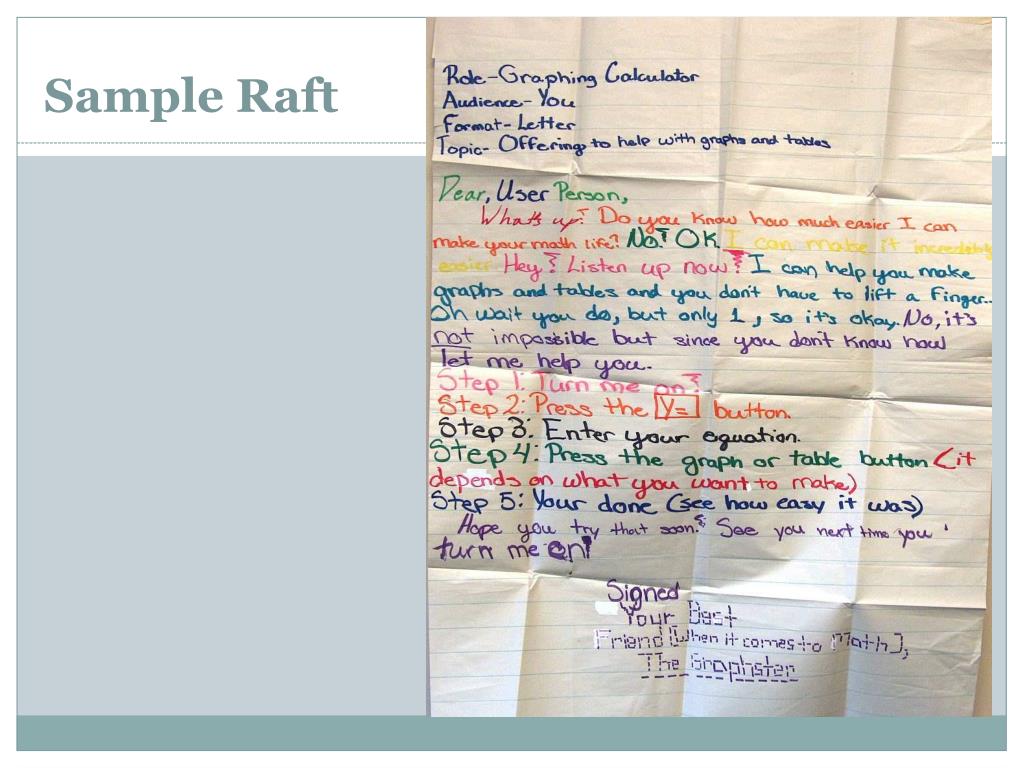 Sample Raft
Role-Graphing Calculator
Audience-You
Format-Letter
Topic- Offering to help with graphs and tables
Dear, User Person,
What's up? Do you know how much easier I can
make your math life? No? OK I can make it incredibly
easier Hey! Listen up now! I can help you make
graphs and tables and you don't have to lift a finger..
Oh wait you do, but only 1, so it's okay. No, it's
not impossible but since you don't know how
let me help you.
Step 1: Turn me on!
Step 2: Press the Y= button.
Step 3: Enter your equation.
Step 4: Press the graph or table button (it
depends on what you want to make)
Step 5: Your done (see how easy it was)
Hope you try that soon! See you next time you
turn me on!
Signed
Your Best
Friend [When it comes to Math],
The Graphster